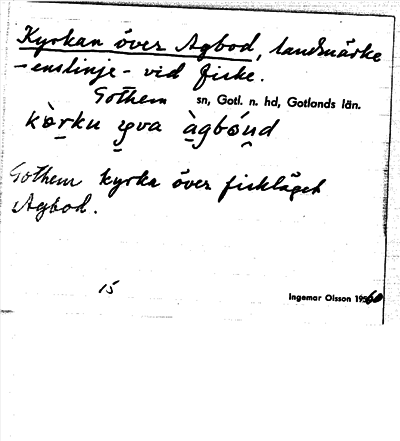 Kyrkan över Agbod, landmärke
- enslinje - vid fiske.
Gothem sn, Gotl. n. hd, Gotlands län.
kòrku yva àgbóud
Gothem kyrka över fiskläget
Agbod.
15
Ingemar Olsson 1960